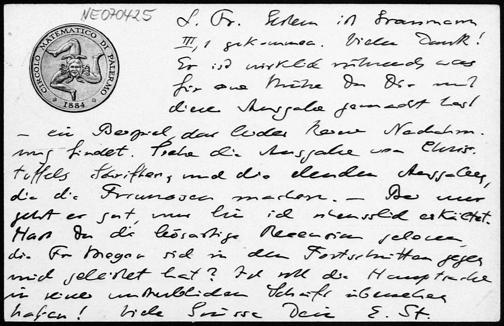 NE070425
CIRCOLO MATEMATICO DI PALERMO
· 1884 ·
L. Fr. Gestern ist Grassmann
III,1 gekommen. Vielen Dank!
Er ist wirklich rührend, was
für eine Mühe Du Dir mit
dieser Ausgabe gemacht hast
– ein Beispiel das leider keine Nachahm-
ung findet. Siehe die Ausgabe von Chris-
toffels Schriften, und die elenden Ausgaben,
die die Franzosen machen. – Bei mir
geht es gut, nur bin ich erkältet.
Hast Du die bösartige Recension gelesen,
die Fr Meyer sich in den Fortschritten gegen
mich geleistet hat? Ich soll die Hauptsache
in seine unsterblichen
haben! Viele Grüsse Dein E. St.